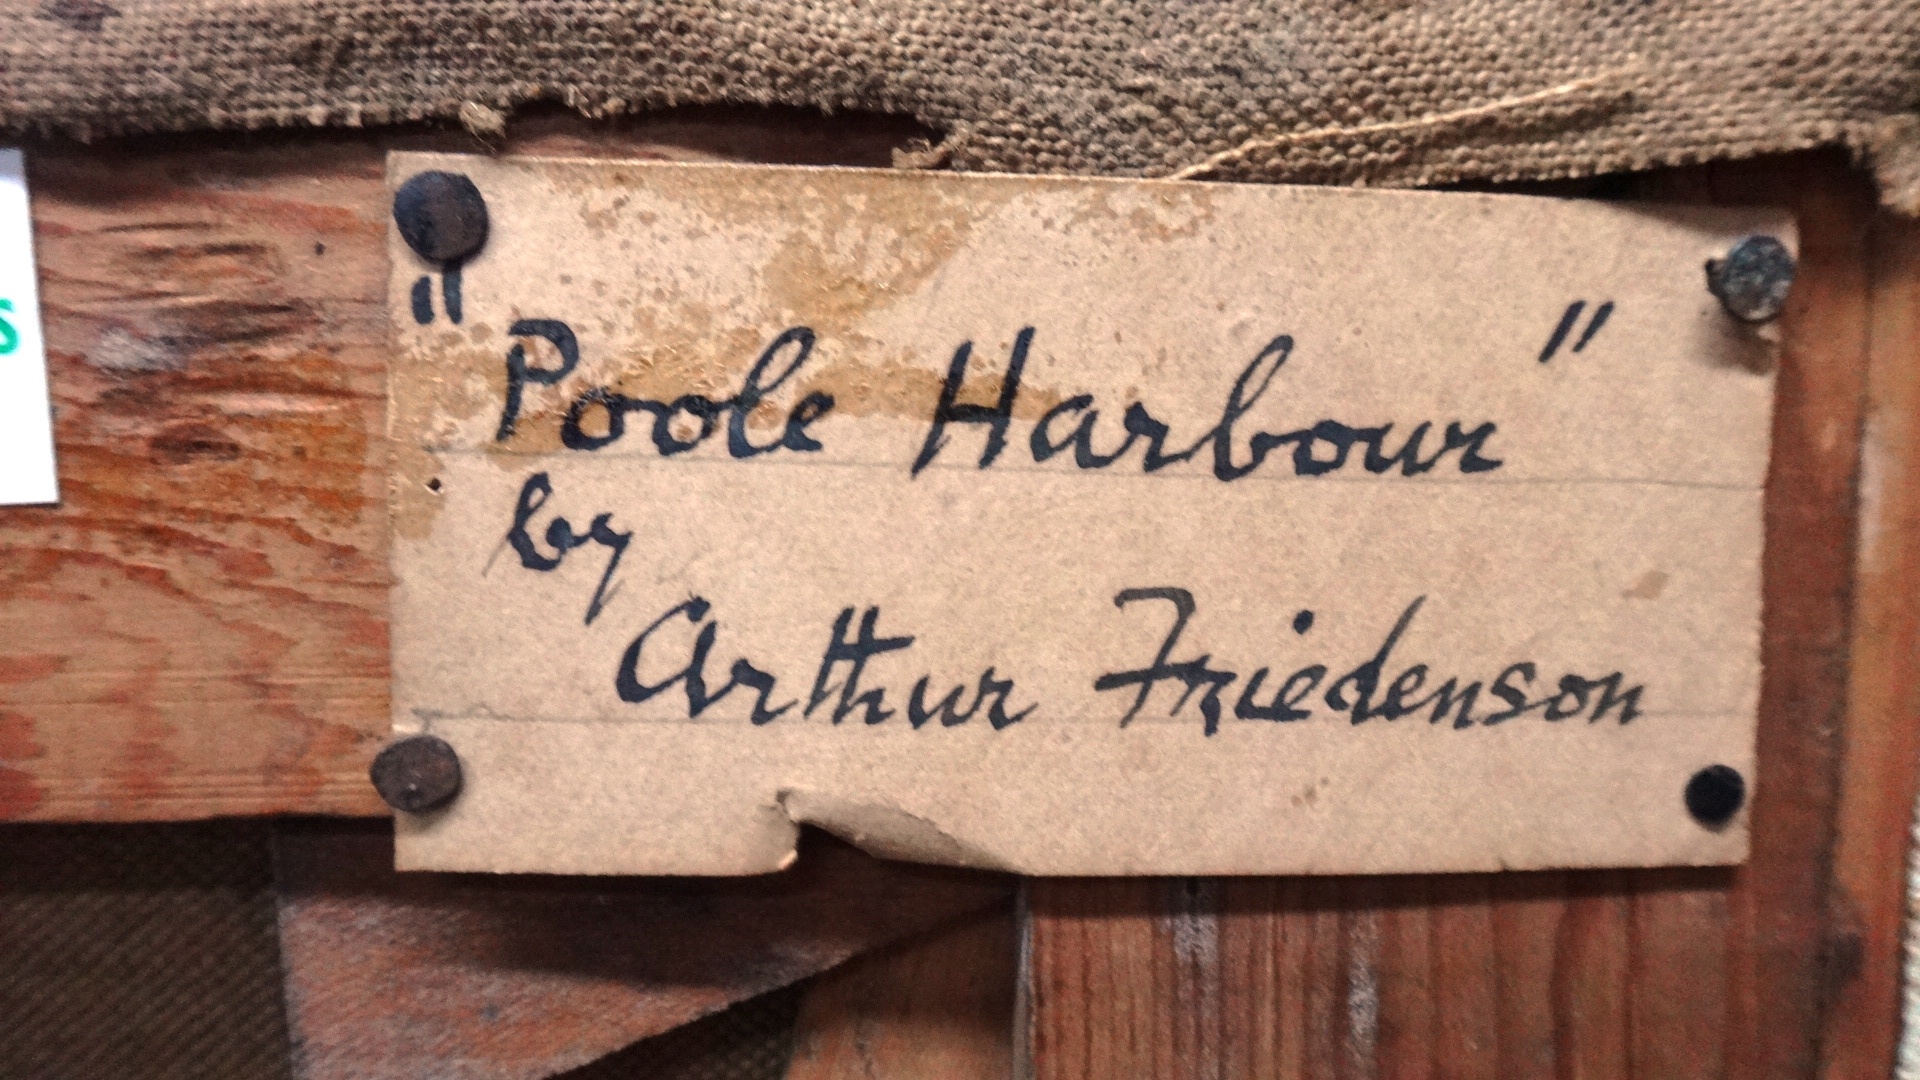 "Poole Harbour"
by
Arthur Friedenson
s